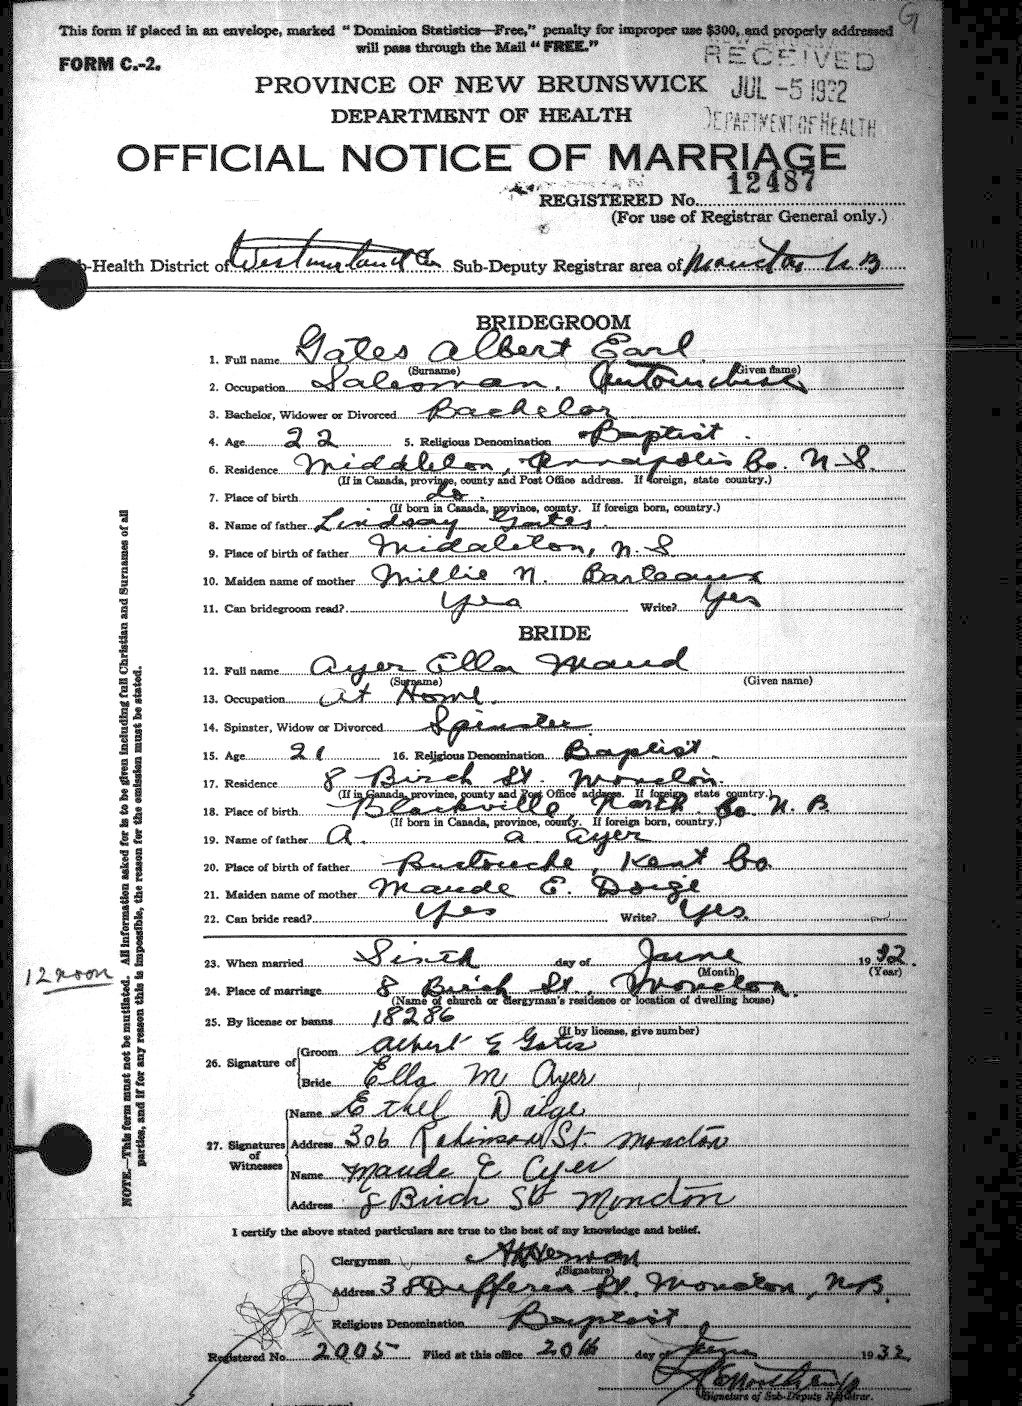 This form if placed in an envelope, marked "Dominion Statistics—Free," penalty for improper use $300, and properly addressed
will pass through the Mail "FREE."
G
FORM C.-2.
RECEIVED
JUL -5 1932
DEPARTMENT OF HEALTH
PROVINCE OF NEW BRUNSWICK
DEPARTMENT OF HEALTH
OFFICIAL NOTICE OF MARRIAGE
12487
REGISTERED No.
(For use of Registrar General only.)
b-Health District of Westmorland Co Sub-Deputy Registrar area of Moncton N B
BRIDEGROOM
1. Full name Gates Albert Earl
(Surname) (Given name)
2. Occupation Salesman.
3. Bachelor, Widower or Divorced Bachelor
4. Age 22 5. Religious Denomination Baptist.
6. Residence Middleton, Annapolis Co. N.S.
(If in Canada, province, county and Post Office address. If foreign, state country.)
7. Place of birth do.
(If born in Canada, province, county. If foreign born, country.)
8. Name of father Lindsay Gates.
9. Place of birth of father Middleton, N.S
10. Maiden name of mother Millie N. Barteaux
11. Can bridegroom read? Yes Write? Yes
BRIDE
12. Full name Ayer Ella Maud
(Surname) (Given name)
13. Occupation At Home.
14. Spinster, Widow or Divorced Spinster
15. Age 21 16. Religious Denomination Baptist.
17. Residence 8 Birch St. Moncton.
(If in Canada, province, county and Post Office address. If foreign, state country.)
18. Place of birth Blackville, North. Co. N. B
(If born in Canada, province, county. If foreign born, country.)
19. Name of father A. A Ayer
20. Place of birth of father Buctouche, Kent Co
21. Maiden name of mother Maude E. Doige
22. Can bride read? Yes Write? Yes.
23. When married Sixth day of June 1932.
(Month) (Year)
12 noon
24. Place of marriage 8 Birch St., Moncton.
(Name of church or clergyman's residence or location of dwelling house)
25. By license or banns 18286
(If by license, give number)
26. Signature of
Groom Albert E Gates
Bride Ella M Ayer
27. Signatures of Witnesses
Name Ethel Doige
Address 306 Robinson St. Moncton
Name Maude E Ayer
Address 8 Birch St Moncton
I certify the above stated particulars are true to the best of my knowledge and belief.
Clergyman
(Signature)
Address 38 Dufferin St., Moncton, N.B.
Religious Denomination Baptist
Registered No. 2005 Filed at this office 20th day of June 1932
Signature of Sub-Deputy Registrar.
NOTE.—This form must not be mutilated. All information asked for is to be given including full Christian and Surnames of all
parties, and if for any reason this is impossible, the reason for the omission must be stated.